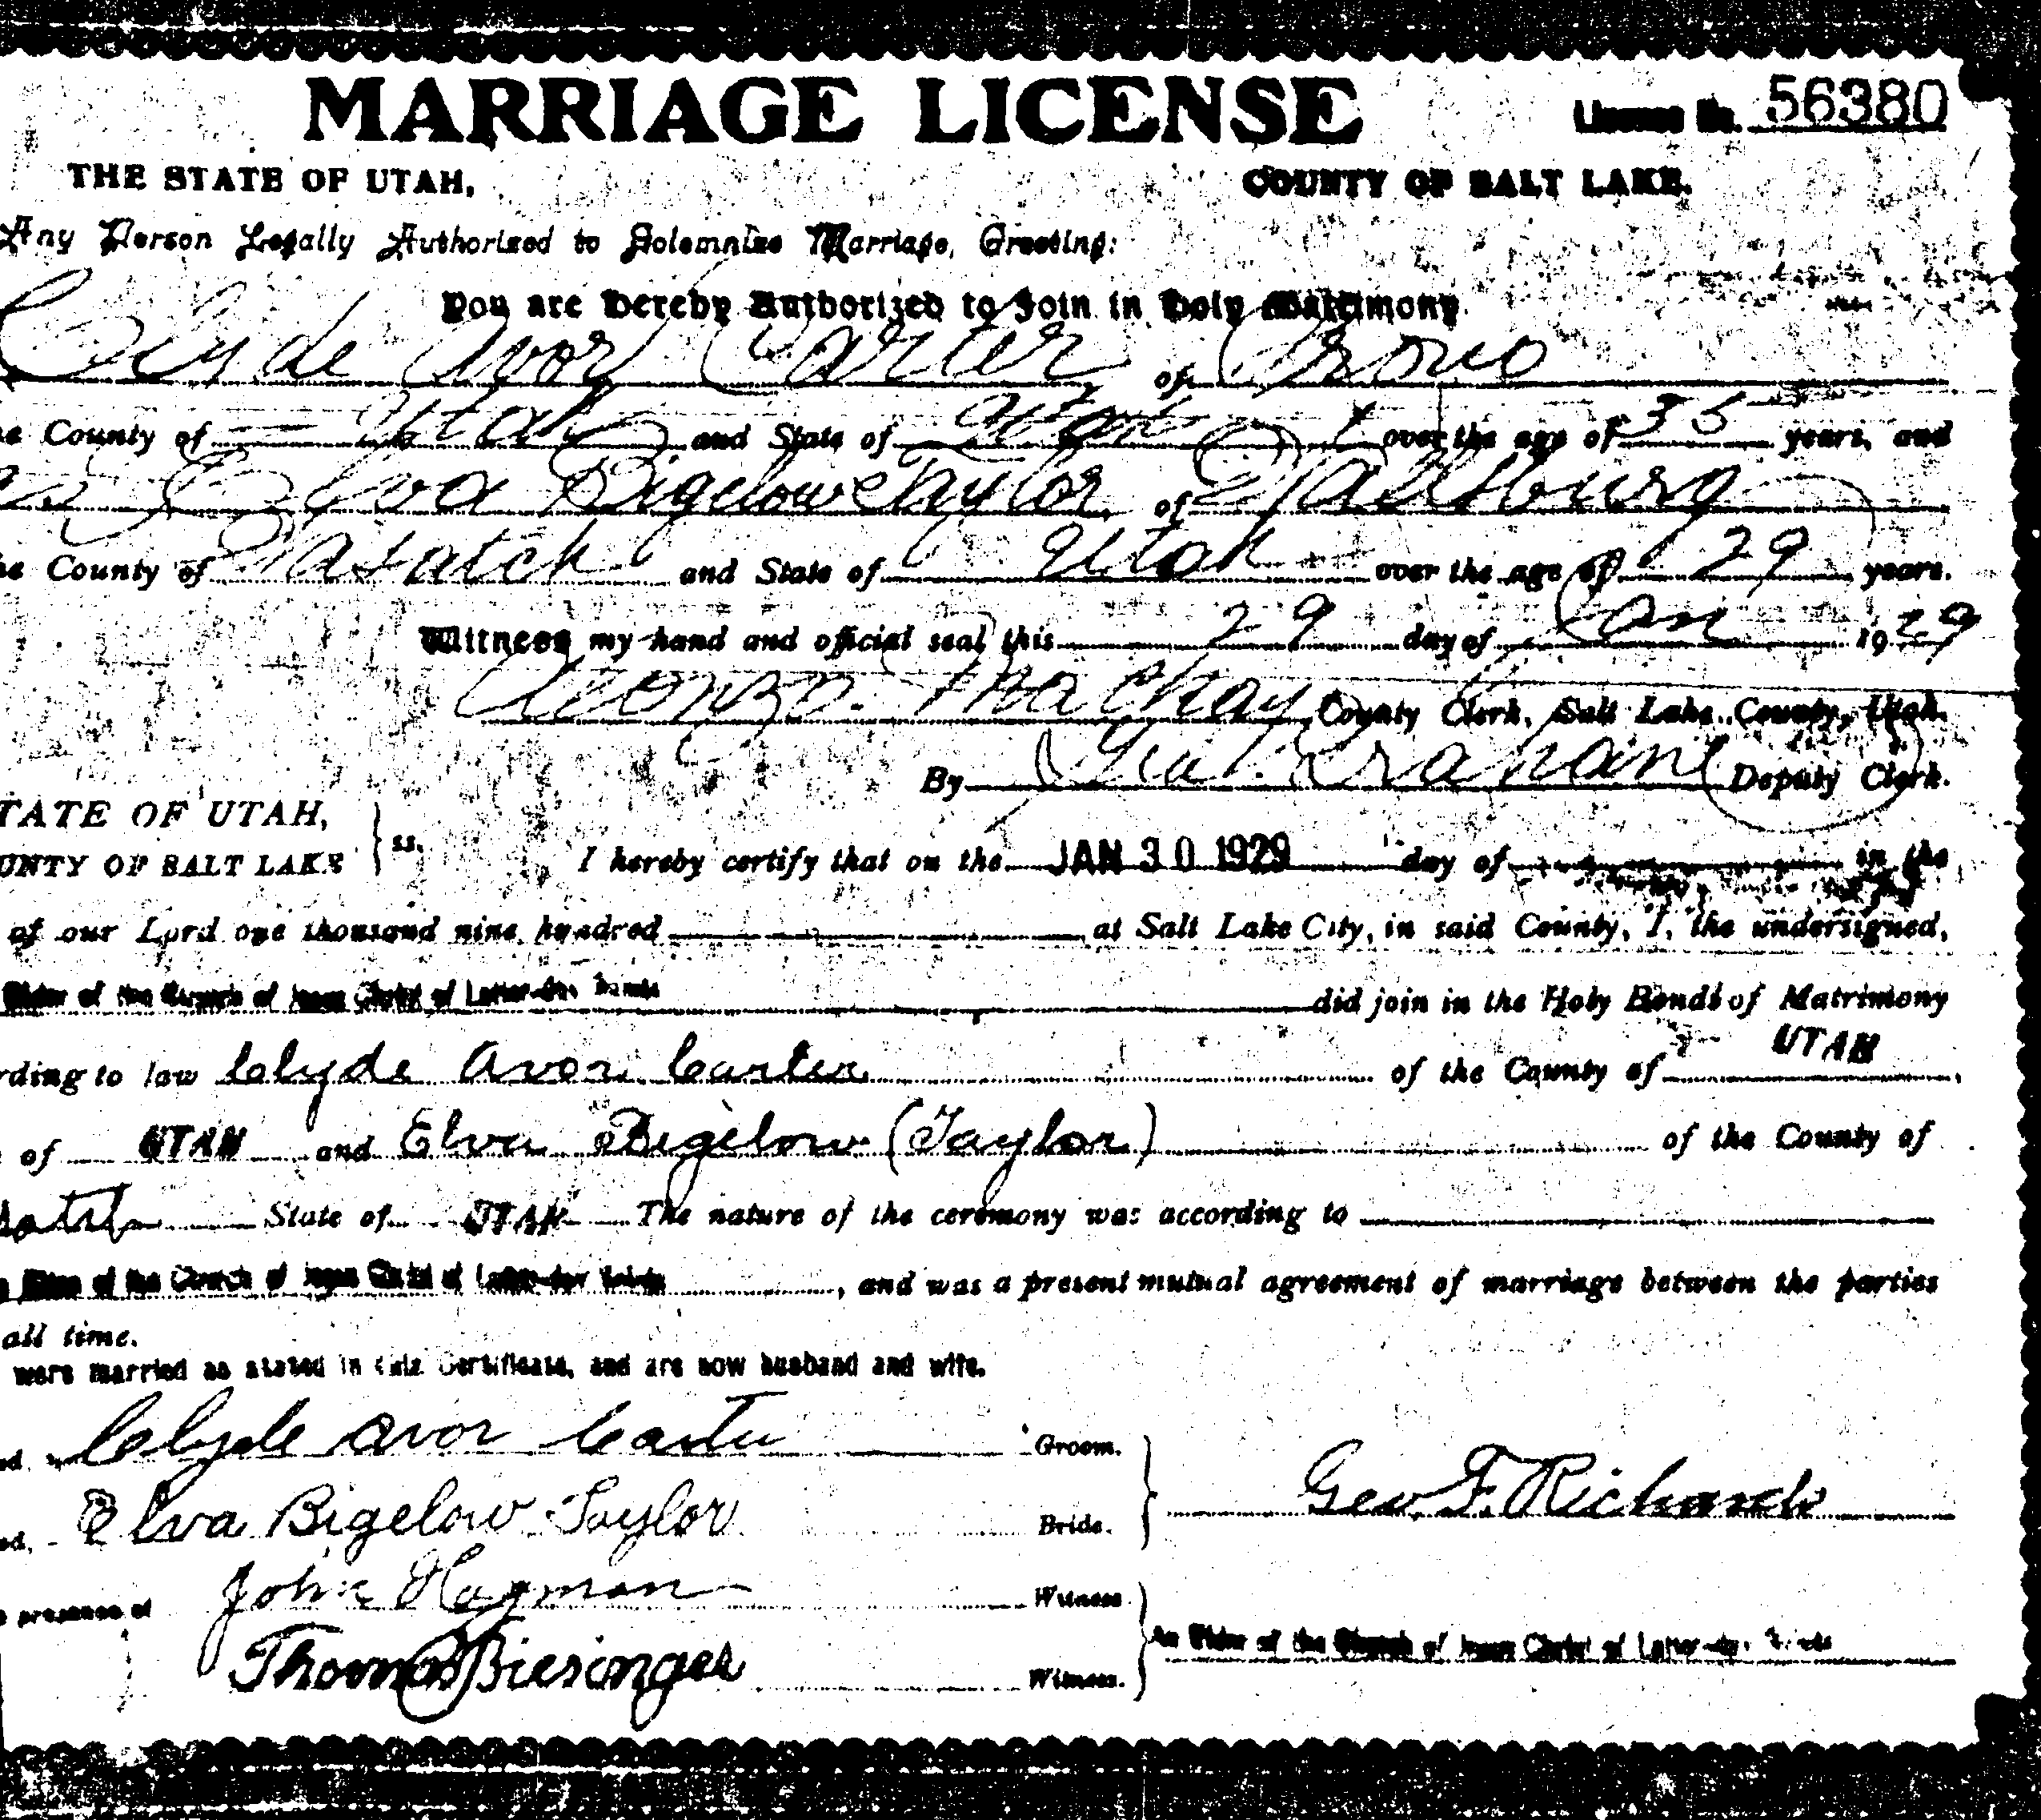 MARRIAGE LICENSE
License No. 56380
THE STATE OF UTAH, COUNTY OF SALT LAKE.
Any Person Legally Authorized to Solemnize Marriage, Greeting:
You are Hereby Authorized to Join in Holy Matrimony
Clyde Avor Carter of Provo
County of Utah and State of Utah over the age of 35 years, and
Elva Bigelow Taylor of Wallsburg
County of Wasatch and State of Utah over the age of 29 years.
Witness my hand and official seal this 29 day of Jan 1929
Alonzo Mackay County Clerk, Salt Lake County, Utah.
By Graham Deputy Clerk.
TATE OF UTAH,
UNTY OF SALT LAKE ss.
I hereby certify that on the JAN 30 1929 day of in the
of our Lord one thousand nine hundred at Salt Lake City, in said County, I, the undersigned,
Elder of the Church of Jesus Christ of Latter-day Saints did join in the Holy Bonds of Matrimony
rding to law Clyde Avor Carter of the County of UTAH
of UTAH and Elva Bigelow (Taylor) of the County of
State of UTAH The nature of the ceremony was according to
Elder of the Church of Jesus Christ of Latter-day Saints, and was a present mutual agreement of marriage between the parties
all time.
were married as stated in this Certificate, and are now husband and wife.
Clyde Avor Carter Groom.
Geo. F. Richards
Elva Bigelow Taylor Bride.
presence of John Hayman Witness
An Elder of the Church of Jesus Christ of Latter-day Saints
Thomas Biesinger Witness.